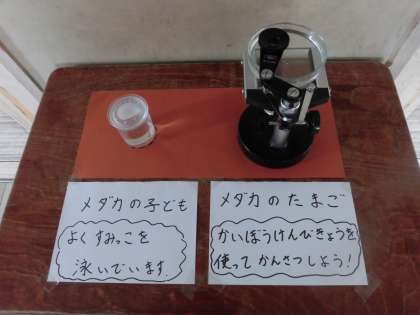 メダカの子ども
よく すみっこを
泳いでいます.
メダカ の たまご
かいぼうけんびきょうを
使って かんさつしよう!